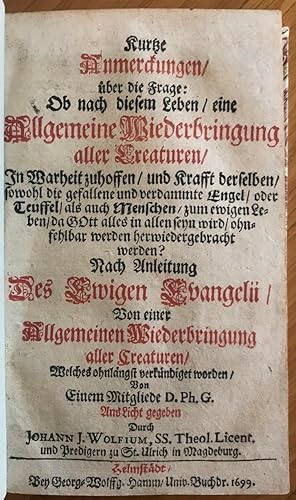 Kurtze
Anmerckungen/
über die Frage:
Ob nach diesem Leben/ eine
Allgemeine Wiederbringung
aller Creaturen/
In Warheit zuhoffen/ und Krafft derselben/
sowohl die gefallene und verdammte Engel/ oder
Teuffel/ als auch Menschen/ zum ewigen Le-
ben/ da GOtt alles in allen seyn wird/ ohn-
fehlbar werden herwiedergebracht
werden?
Nach Anleitung
Des Ewigen Evangelii/
Von einer
Allgemeinen Wiederbringung
aller Creaturen/
Welches ohnlängst verkündiget worden/
Von
Einem Mitgliede D. Ph. G.
Ans Licht gegeben
Durch
JOHANN J. WOLFIUM, SS. Theol. Licent.
und Predigern zu St. Ulrich in Magdeburg.
Helmstädt/
Bey Georg-Wolffg. Hamm/ Univ. Buchdr. 1699.